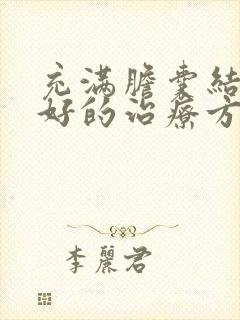 充满膽囊結
好的治療方
李麗君